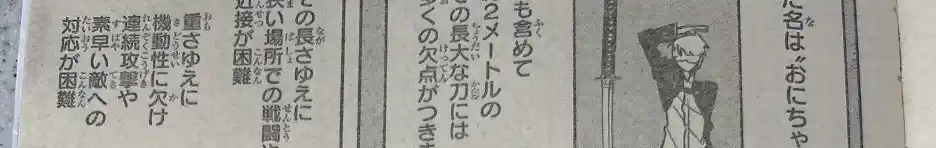 た名は〝おにちゃ
も含めて
2メートルの
その長大な刀には
多くの欠点がつきま
その長さゆえに
狭い場所での戦闘や
近接が困難
重さゆえに
機動性に欠け
連続攻撃や
素早い敵への
対応が困難